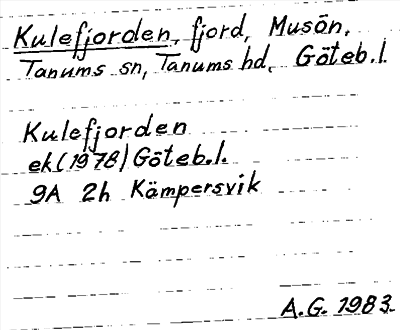 Kulefjorden, fjord, Musön,
Tanums sn, Tanums hd, Göteb.l.
Kulefjorden
ek (1978) Göteb.l.
9A 2h Kämpersvik
A.G. 1983.